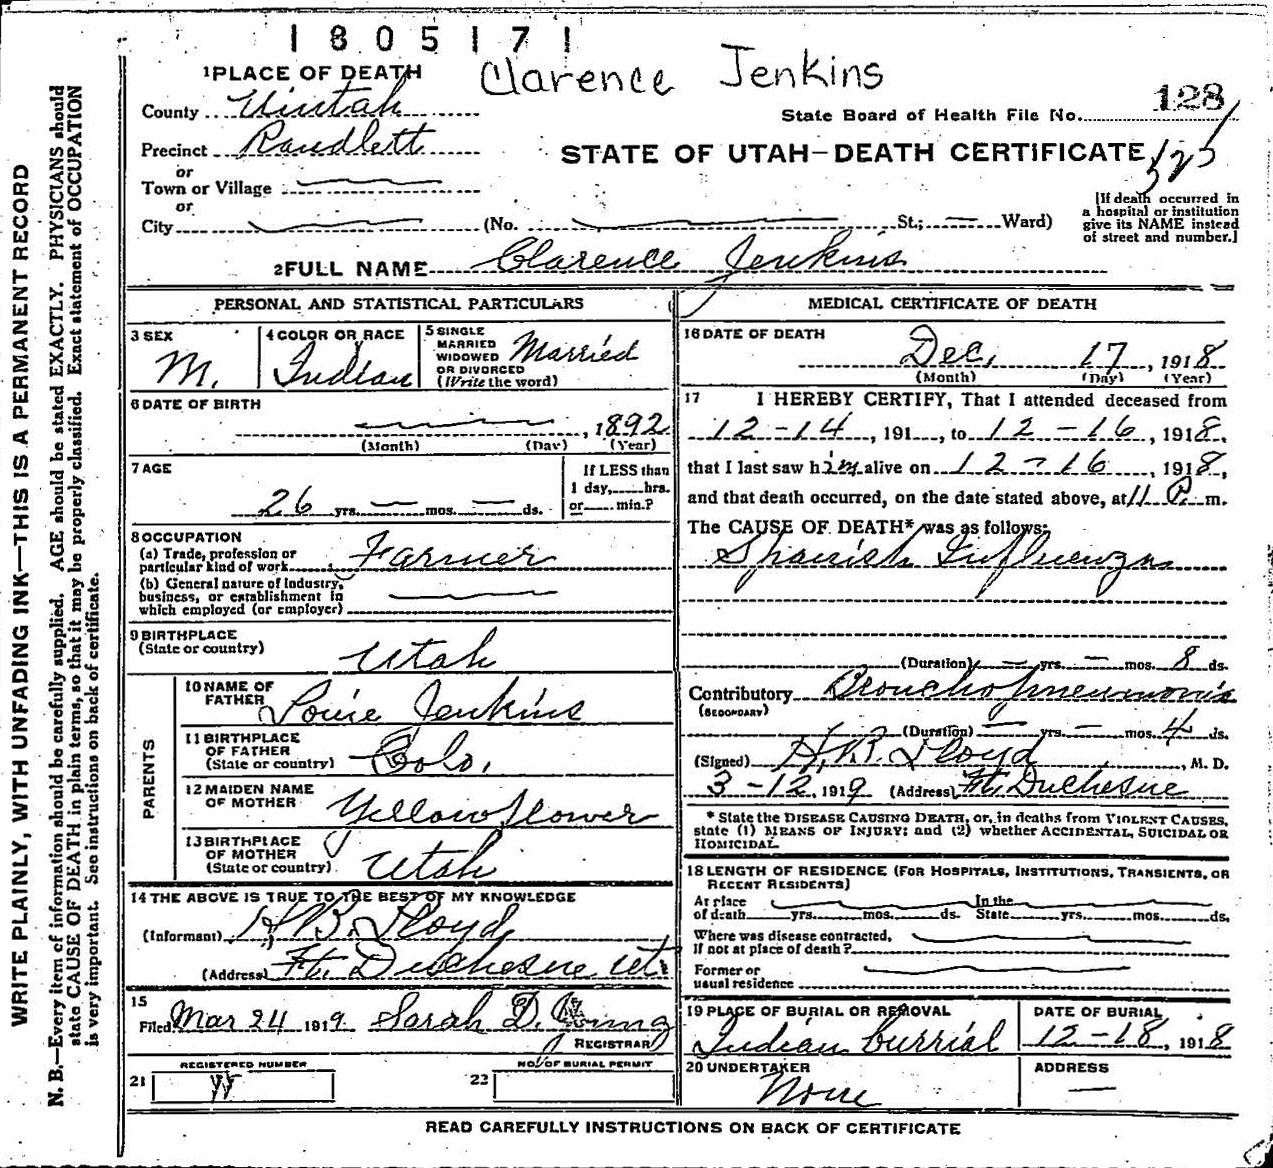 1805171
Clarence Jenkins
1 PLACE OF DEATH
County Uintah
State Board of Health File No. 128
Precinct Randlett
STATE OF UTAH—DEATH CERTIFICATE
or
Town or Village
or
City (No. St.; Ward)
[If death occurred in
a hospital or institution
give its NAME instead
of street and number.]
2 FULL NAME Clarence Jenkins
PERSONAL AND STATISTICAL PARTICULARS
3 SEX
M.
4 COLOR OR RACE
Indian
5 SINGLE
MARRIED
WIDOWED
OR DIVORCED
(Write the word)
Married
6 DATE OF BIRTH
, 1892
(Month) (Day) (Year)
7 AGE
26 yrs. — mos. — ds.
If LESS than
1 day,.....hrs.
or......min.?
8 OCCUPATION
(a) Trade, profession or
particular kind of work Farmer
(b) General nature of Industry,
business, or establishment in
which employed (or employer)
9 BIRTHPLACE
(State or country)
Utah
PARENTS
10 NAME OF
FATHER
Louie Jenkins
11 BIRTHPLACE
OF FATHER
(State or country)
Colo.
12 MAIDEN NAME
OF MOTHER
Yellowflower
13 BIRTHPLACE
OF MOTHER
(State or country)
Utah
14 THE ABOVE IS TRUE TO THE BEST OF MY KNOWLEDGE
(Informant) H.B. Lloyd,
(Address) Ft. Duchesne Ut.
15
Filed Mar 24 1919. Sarah D.
REGISTRAR
REGISTERED NUMBER
21
NO. OF BURIAL PERMIT
22
MEDICAL CERTIFICATE OF DEATH
16 DATE OF DEATH
Dec. 17, 1918
(Month) (Day) (Year)
17 I HEREBY CERTIFY, That I attended deceased from
12-14, 191...., to 12-16, 1918,
that I last saw him alive on 12-16, 1918,
and that death occurred, on the date stated above, at 11 P. m.
The CAUSE OF DEATH* was as follows:
Spanish Influenza
(Duration) — yrs. — mos. 8 ds.
Contributory Bronchopneumonia
(SECONDARY)
(Duration) — yrs. — mos. 4 ds.
(Signed) H.B. Lloyd, M. D.
3-12, 1919 (Address) Ft. Duchesne
* State the DISEASE CAUSING DEATH, or, in deaths from VIOLENT CAUSES,
state (1) MEANS OF INJURY; and (2) whether ACCIDENTAL, SUICIDAL OR
HOMICIDAL.
18 LENGTH OF RESIDENCE (FOR HOSPITALS, INSTITUTIONS, TRANSIENTS, OR
RECENT RESIDENTS)
At place In the
of death yrs. mos. ds. State yrs. mos. ds.
Where was disease contracted,
If not at place of death?
Former or
usual residence
19 PLACE OF BURIAL OR REMOVAL
Indian burrial
DATE OF BURIAL
12-18, 1918
20 UNDERTAKER
None
ADDRESS
—
READ CAREFULLY INSTRUCTIONS ON BACK OF CERTIFICATE
WRITE PLAINLY, WITH UNFADING INK—THIS IS A PERMANENT RECORD
N. B.—Every item of information should be carefully supplied. AGE should be stated EXACTLY. PHYSICIANS should
state CAUSE OF DEATH in plain terms, so that it may be properly classified. Exact statement of OCCUPATION
is very important. See instructions on back of certificate.